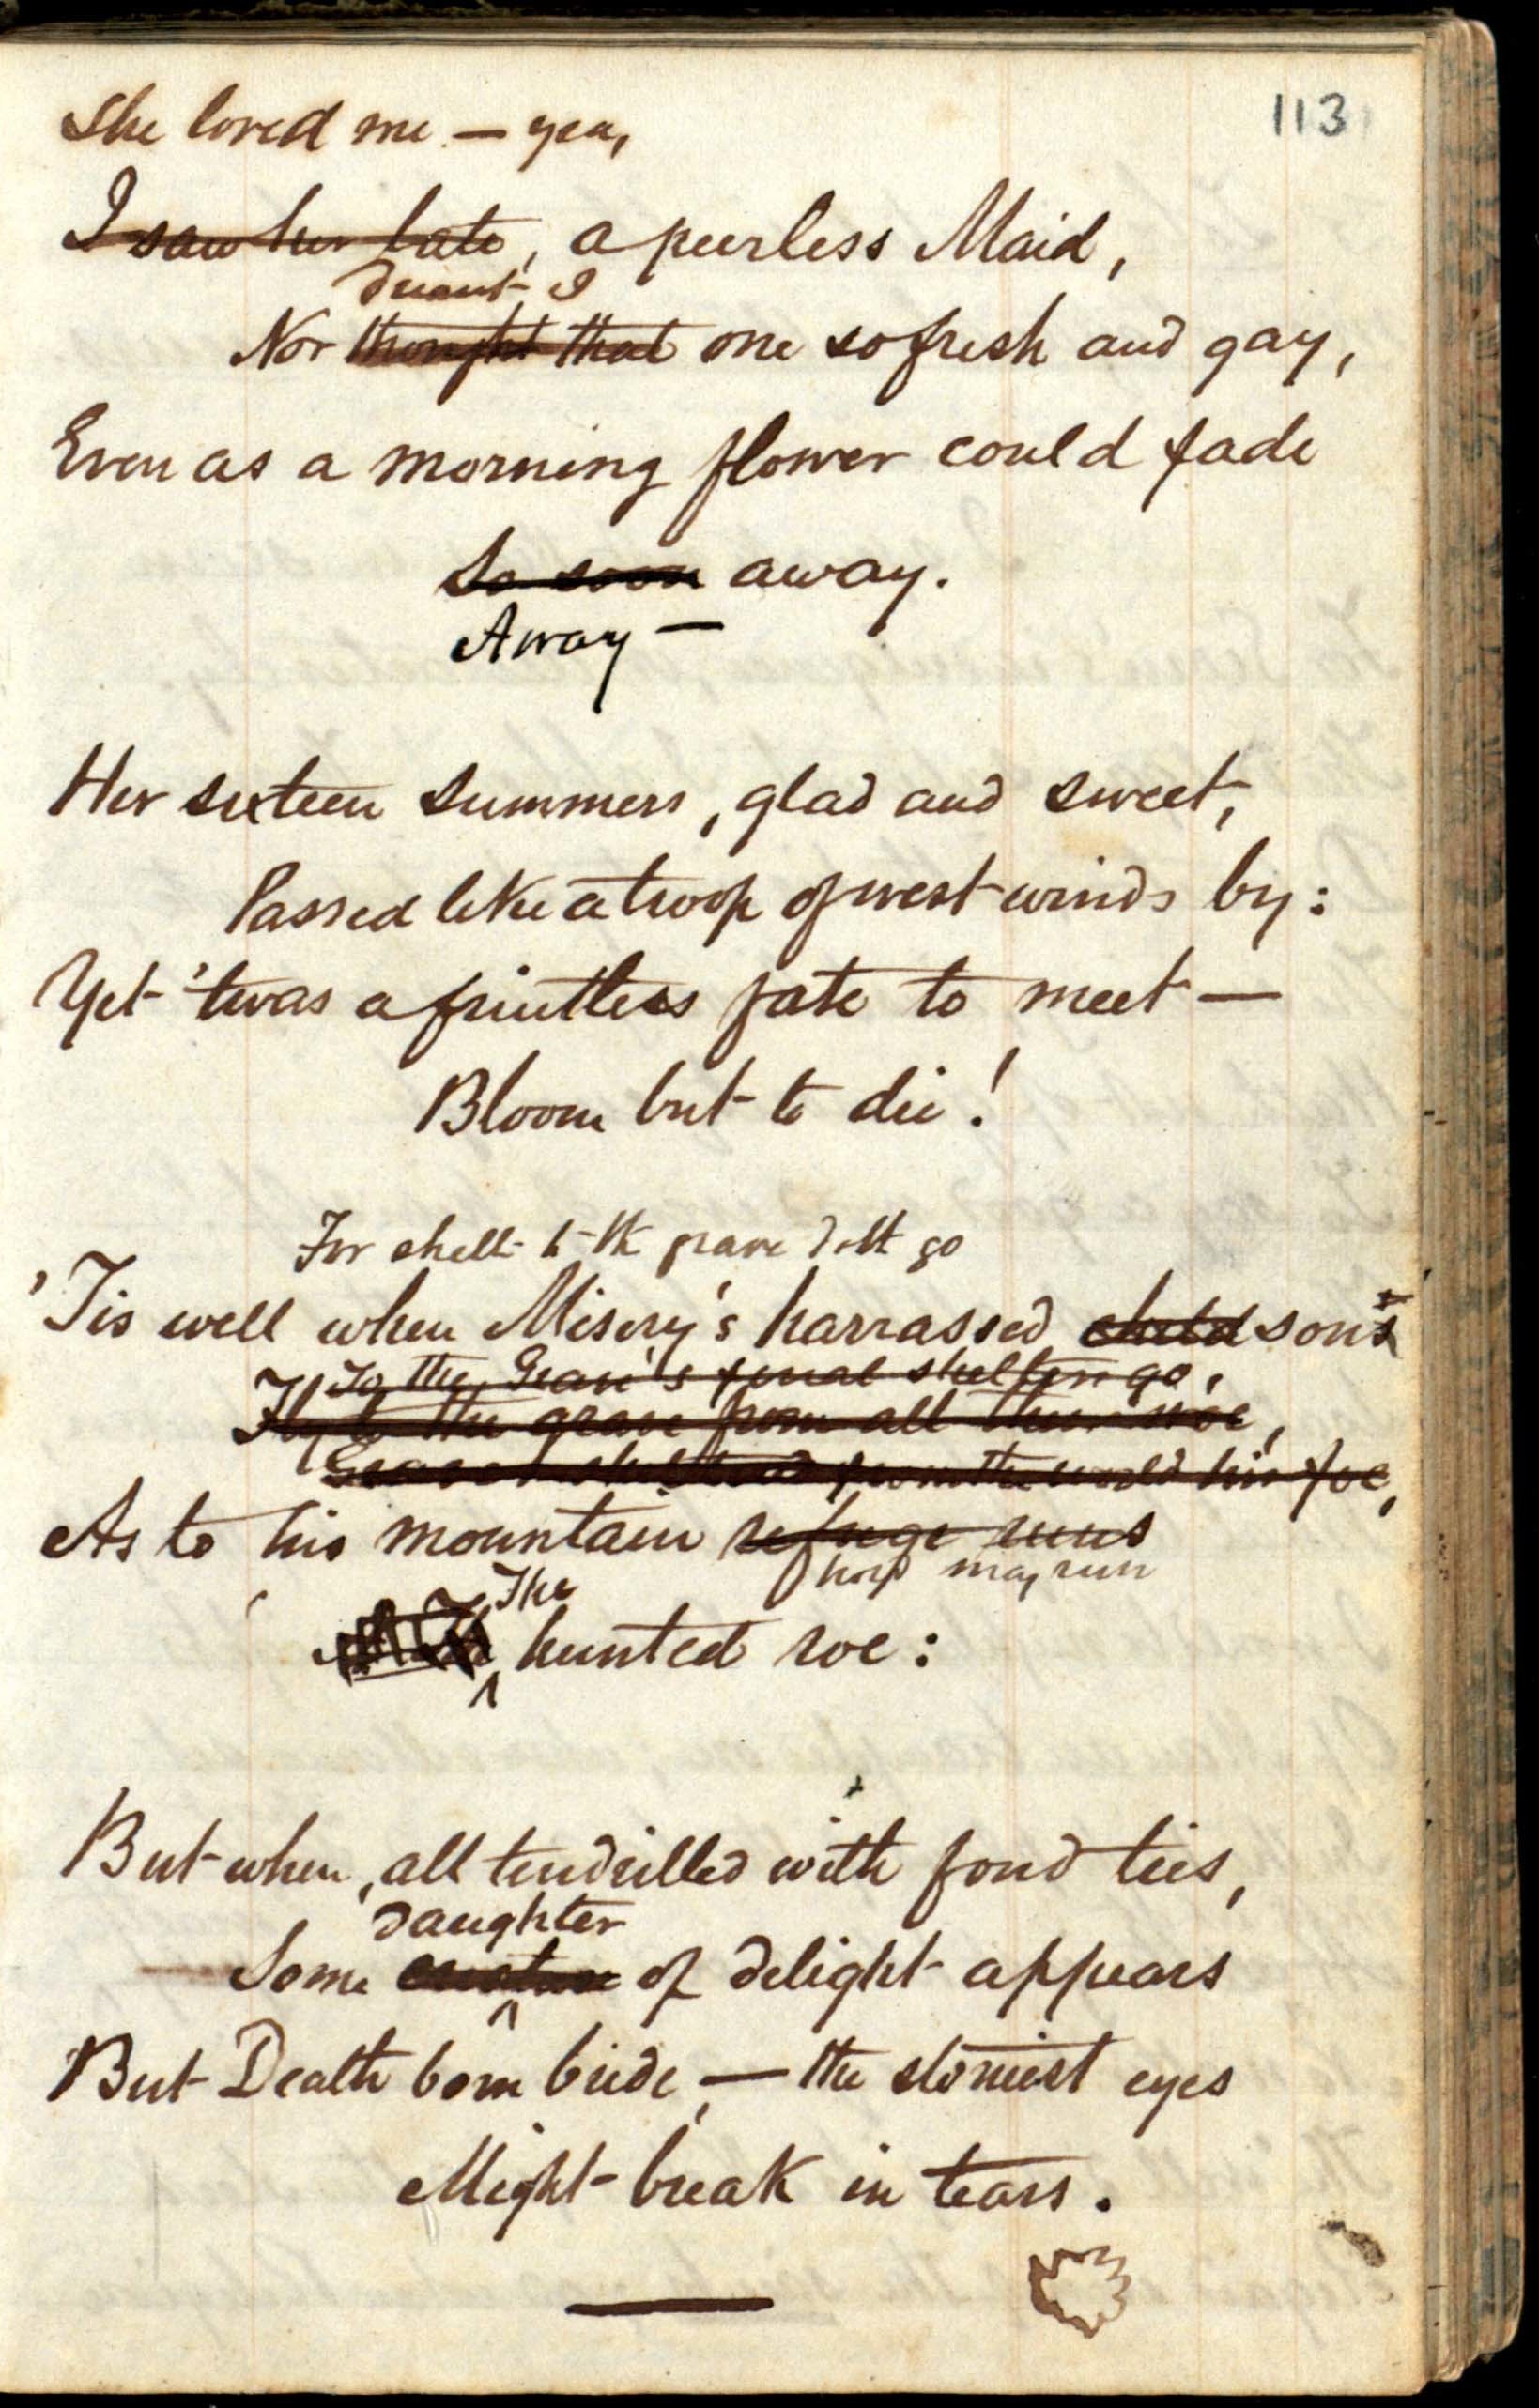 113
She loved me — yea,
I saw her late, a peerless Maid,
dreamt I
Nor thought that one so fresh and gay,
Even as a morning flower could fade
So soon away.
Away —
Her sixteen summers, glad and sweet,
Passed like a troop of west winds by:
Yet 'twas a fruitless fate to meet —
Bloom but to die!
For shelt to the grave doth go
'Tis well when Misery's harrassed child son's
To the Grave's final shelter go,
Fly to the grave from all their woe,
from the world his foe,
As to his mountain refuge runs
hold may run
The
hunted roe:
But when, all tendrilled with fond ties,
daughter
Some creature of delight appears
But Death born bride, — the stoniest eyes
Might break in tears.